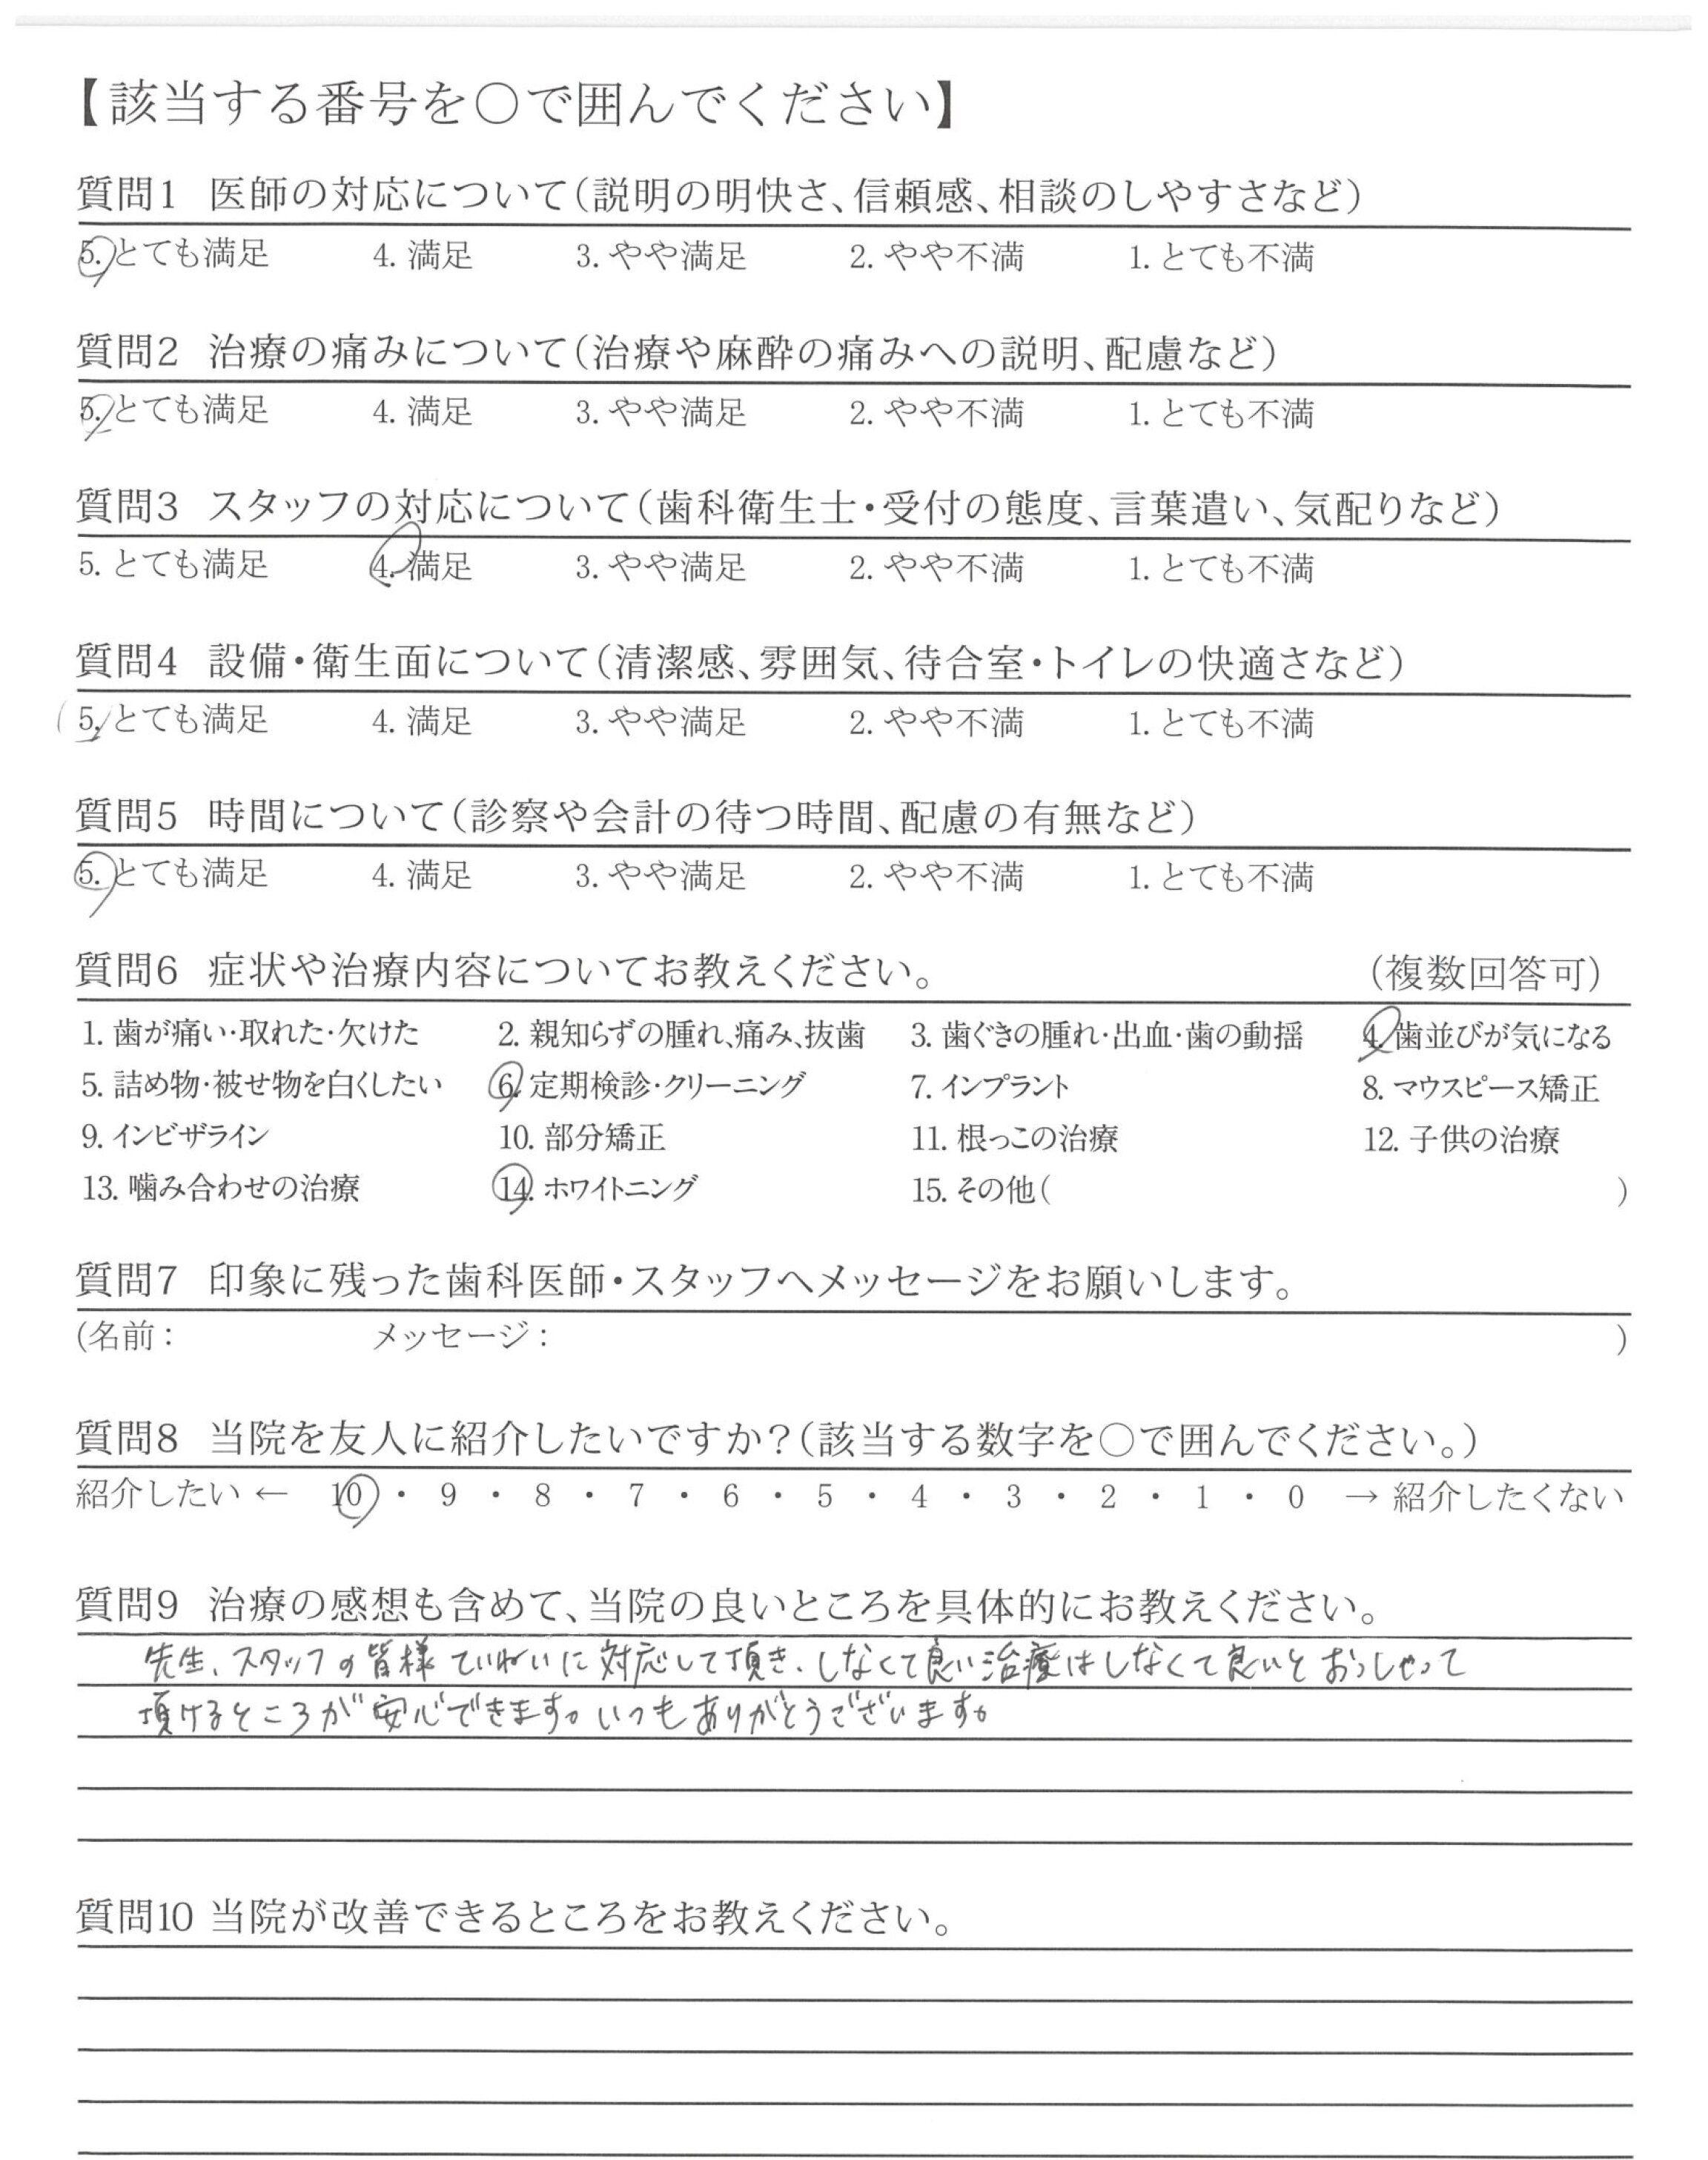 【該当する番号を〇で囲んでください】
質問1 医師の対応について(説明の明快さ、信頼感、相談のしやすさなど)
5. とても満足 4. 満足 3. やや満足 2. やや不満 1. とても不満
質問2 治療の痛みについて(治療や麻酔の痛みへの説明、配慮など)
5. とても満足 4. 満足 3. やや満足 2. やや不満 1. とても不満
質問3 スタッフの対応について(歯科衛生士・受付の態度、言葉遣い、気配りなど)
5. とても満足 4. 満足 3. やや満足 2. やや不満 1. とても不満
質問4 設備・衛生面について(清潔感、雰囲気、待合室・トイレの快適さなど)
5. とても満足 4. 満足 3. やや満足 2. やや不満 1. とても不満
質問5 時間について(診察や会計の待つ時間、配慮の有無など)
5. とても満足 4. 満足 3. やや満足 2. やや不満 1. とても不満
質問6 症状や治療内容についてお教えください。 (複数回答可)
1. 歯が痛い・取れた・欠けた 2. 親知らずの腫れ、痛み、抜歯 3. 歯ぐきの腫れ・出血・歯の動揺 4. 歯並びが気になる
5. 詰め物・被せ物を白くしたい 6. 定期検診・クリーニング 7. インプラント 8. マウスピース矯正
9. インビザライン 10. 部分矯正 11. 根っこの治療 12. 子供の治療
13. 噛み合わせの治療 14. ホワイトニング 15. その他( )
質問7 印象に残った歯科医師・スタッフへメッセージをお願いします。
(名前: メッセージ: )
質問8 当院を友人に紹介したいですか?(該当する数字を〇で囲んでください。)
紹介したい ← 10 ・ 9 ・ 8 ・ 7 ・ 6 ・ 5 ・ 4 ・ 3 ・ 2 ・ 1 ・ 0 → 紹介したくない
質問9 治療の感想も含めて、当院の良いところを具体的にお教えください。
先生、スタッフの皆様ていねいに対応して頂き、しなくて良い治療はしなくて良いとおっしゃって
頂けるところが安心できます。いつもありがとうございます。
質問10 当院が改善できるところをお教えください。